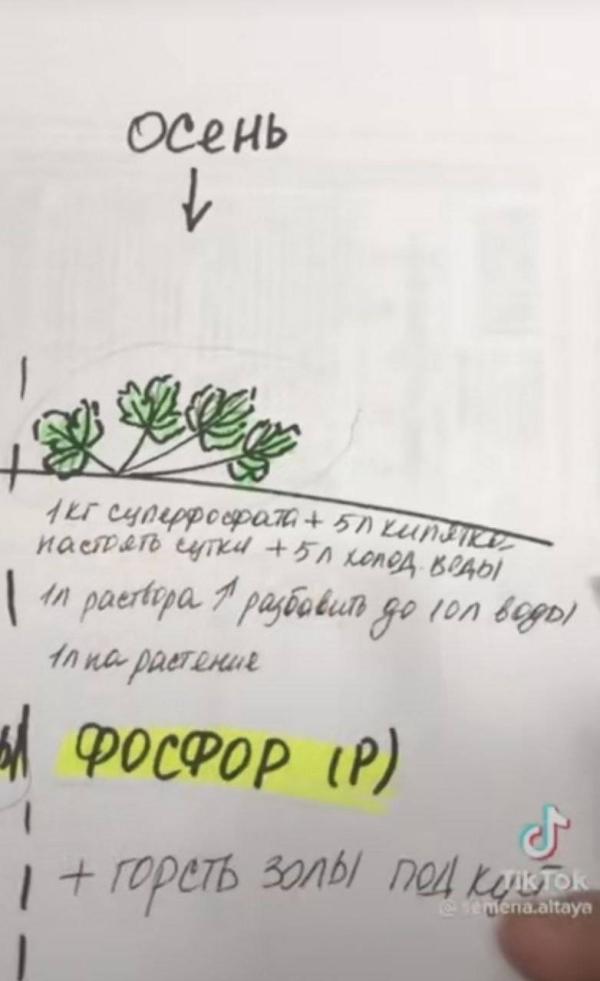 осень
1кг суперфосфата + 5л кипятка
настоять сутки + 5л холод. воды
1л раствора разбавить до 10л воды
1л на растение
ФОСФОР (P)
+ горсть золы под
TikTok
@semena.altaya